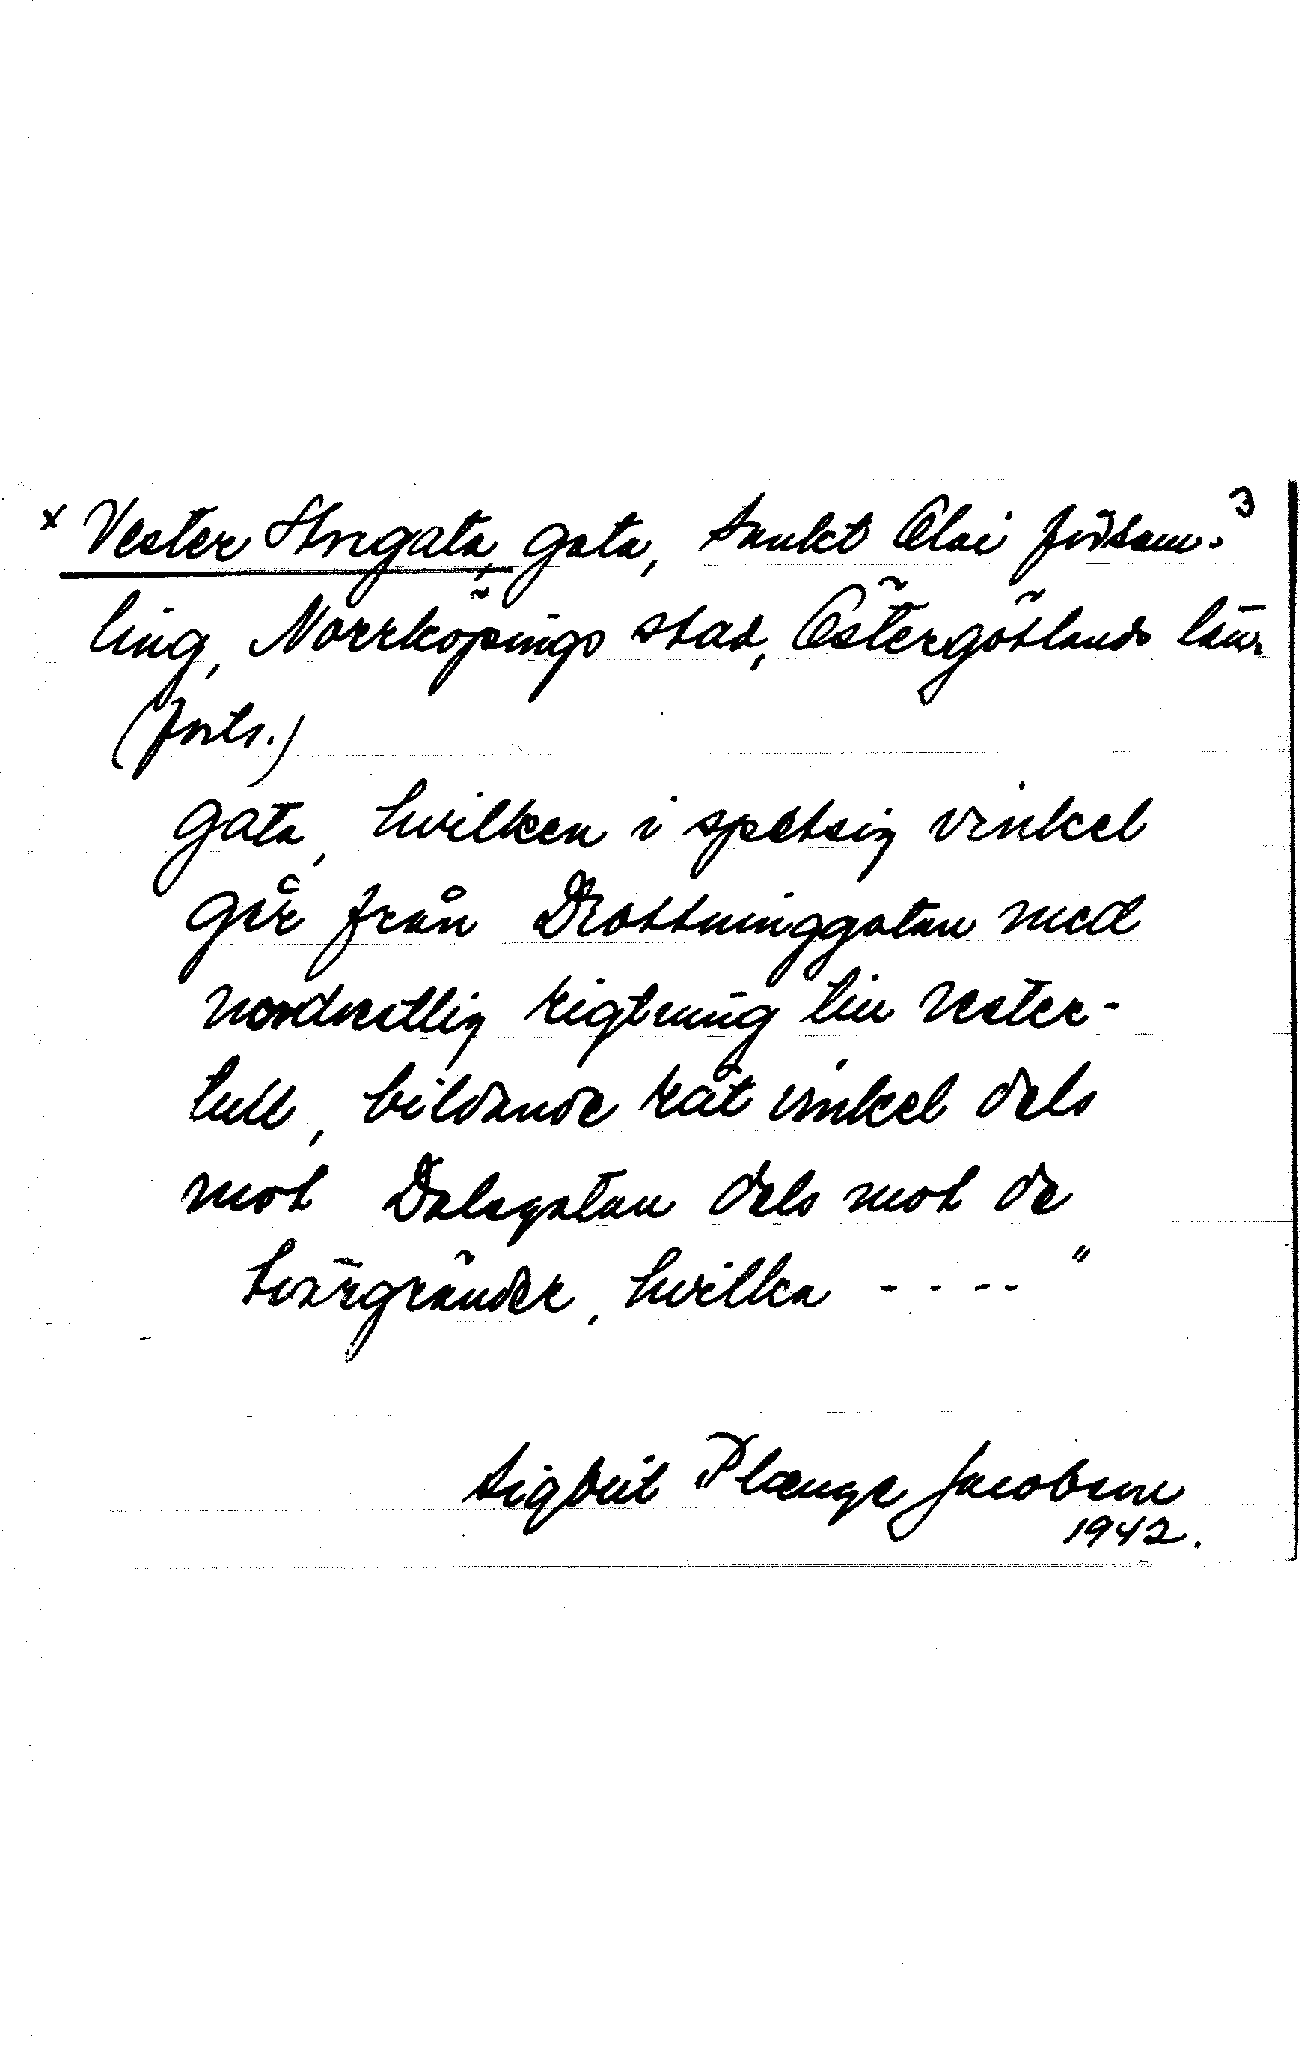 x Vester Storgata, gata, Sankt Olai försam- 3
ling, Norrköpings stad, Östergötlands län.
(forts.)
gata, hvilken i spetsig vinkel
går från Drottninggatan med
nordvestlig rigtning till Vester-
tull, bildande rät vinkel dels
mot Dalsgatan dels mot de
tvärgränder, hvilka - - - - "
Sigbrit Plænge Jacobson
1942.